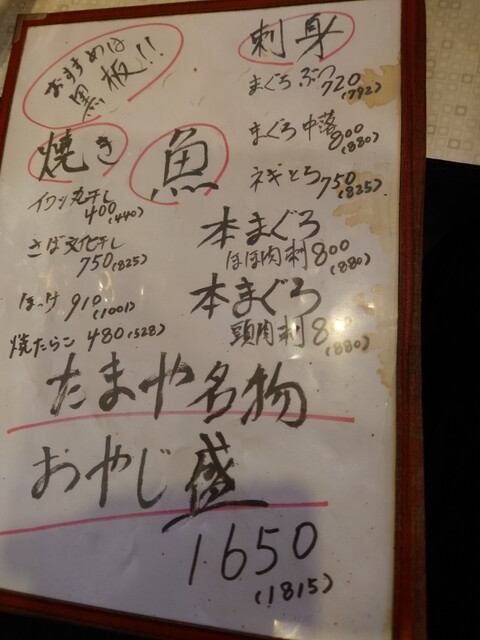 おすすめは
黒板!!
刺身
まぐろぶつ 720
(792)
まぐろ中落 800
(880)
ネギとろ 750
(825)
本まぐろ
ほほ肉刺 800
(880)
本まぐろ
頭肉刺 8
(880)
焼き
魚
イワシ丸干し
400 (440)
さば文化干し
750 (825)
ほっけ 910
(1001)
焼たらこ 480 (528)
たまや名物
おやじ盛
1650
(1815)